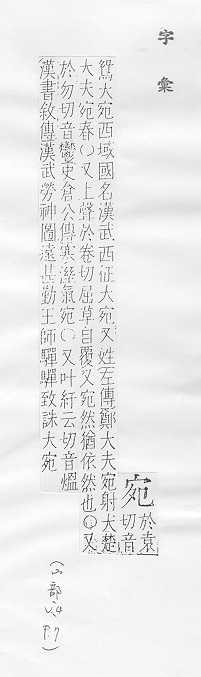 字彙
宛
於袁
切音
鴛大宛西域國名漢武西征大宛又姓左傳鄭大夫宛射犬楚
大夫宛春〇又上聲於卷切屈草自覆又宛然猶依然也〇又
於勿切音鬱史倉公傳寒溼氣宛〇又叶紆云切音熅
漢書敘傳漢武勞神圖遠甚勤王師驒驒致誅大宛
(宀部 v.4
P.7)